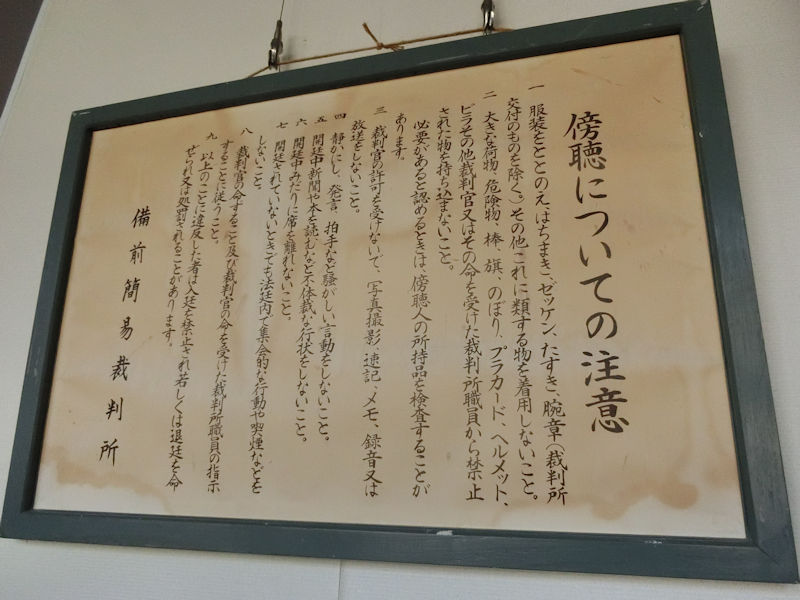 傍聴についての注意
一 服装をととのえ、はちまき、ゼッケン、たすき、腕章（裁判所
交付のものを除く。）その他これに類する物を着用しないこと。
二 大きな荷物、危険物、棒、旗、のぼり、プラカード、ヘルメット、
ビラその他裁判官又はその命を受けた裁判所職員から禁止
された物を持ち込まないこと。
必要があると認めるときは、傍聴人の所持品を検査することが
あります。
三 裁判官の許可を受けないで、写真撮影、速記、メモ、録音又は
放送をしないこと。
四 静かにし、発言、拍手など騒がしい言動をしないこと。
五 開廷中新聞や本を読むなど不体裁な行状をしないこと。
六 開廷中みだりに席を離れないこと。
七 開廷されていないときでも法廷内で集会的な行動や喫煙などを
しないこと。
八 裁判官の命ずること及び裁判官の命を受けた裁判所職員の指示
することに従うこと。
九 以上のことに違反した者は入廷を禁止され若しくは退廷を命
ぜられ又は処罰されることがあります。
備前簡易裁判所